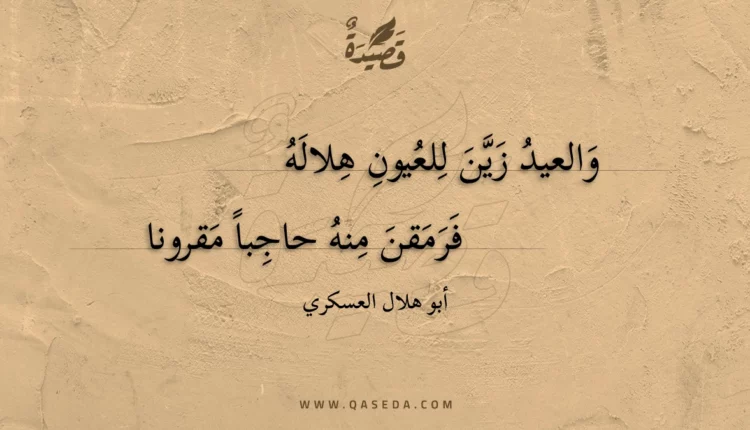 قَصِيدَةٌ
وَالعيدُ زَيَّنَ لِلعُيونِ هِلالَهُ
فَرَمَقنَ مِنهُ حاجِباً مَقرونا
أبو هلال العسكري
WWW.QASEDA.COM